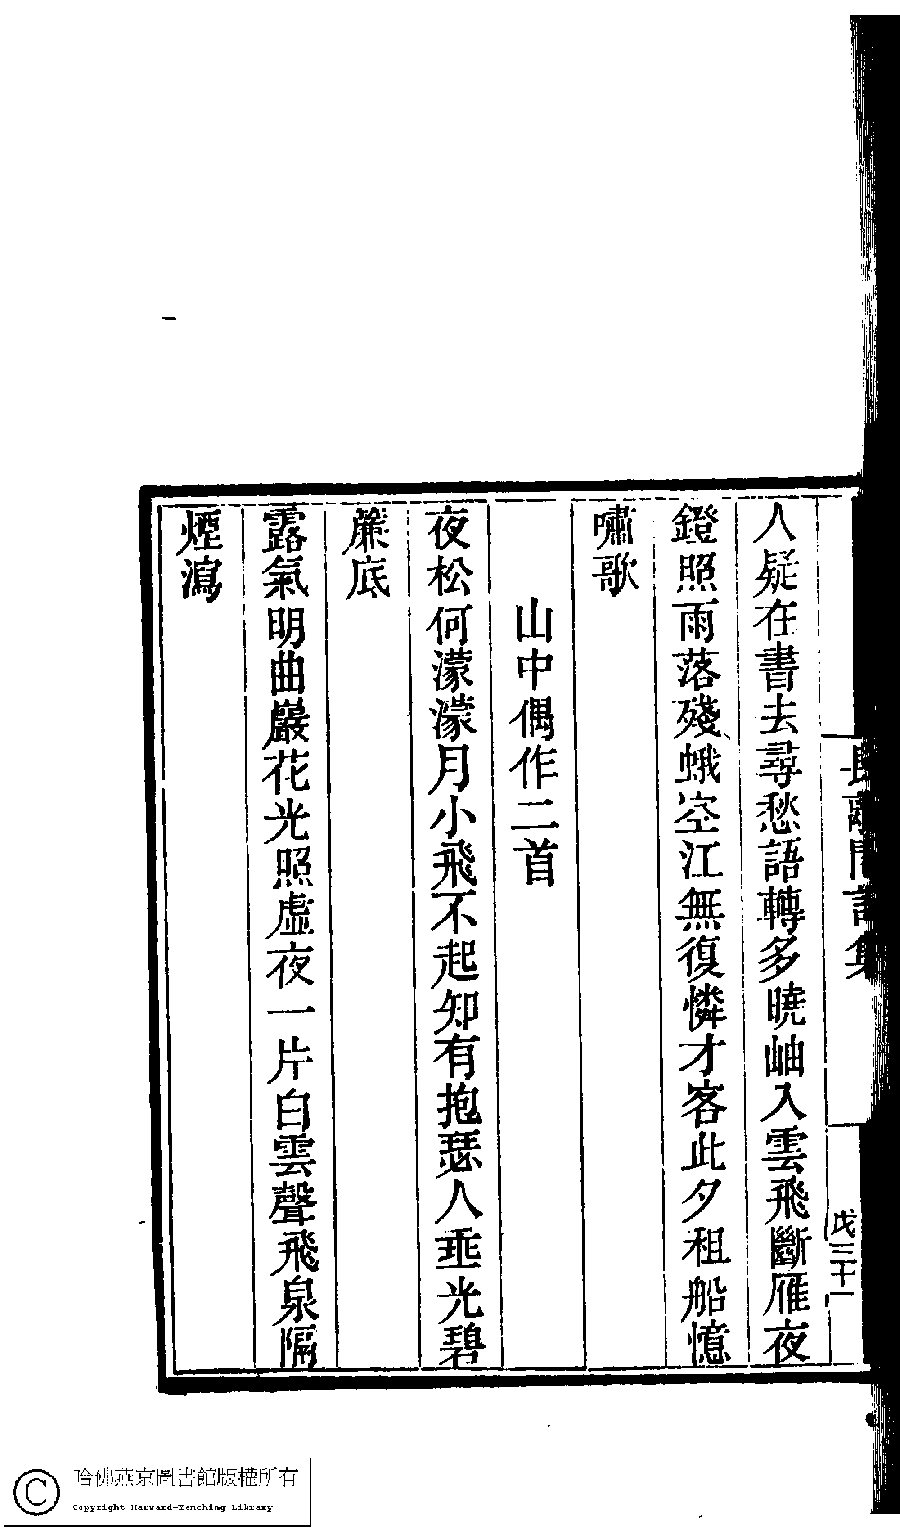 人疑在書去尋愁語轉多曉岫入雲飛斷雁夜
鐙照雨落殘蛾空江無復憐才客此夕租船憶
嘯歌
山中偶作二首
夜松何濛濛月小飛不起知有抱瑟人垂光碧
簾底
露氣明曲巖花光照虛夜一片白雲聲飛泉隔
煙瀉
戊三十一
哈佛燕京圖書館版權所有
Copyright Harvard-Yenching Library